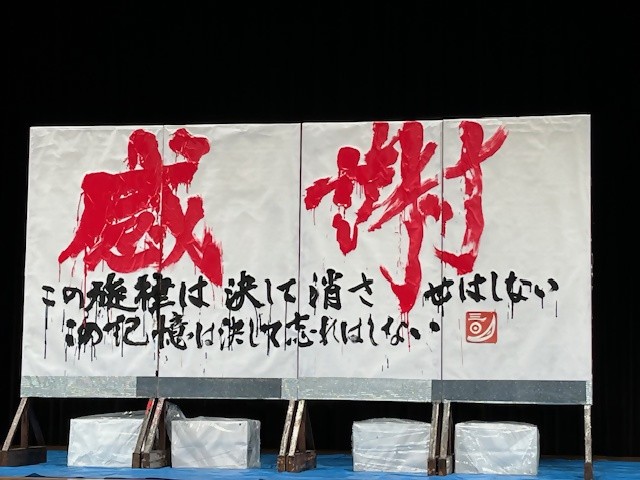 感謝
この旋律は決して消させはしない
この記憶は決して忘れはしない